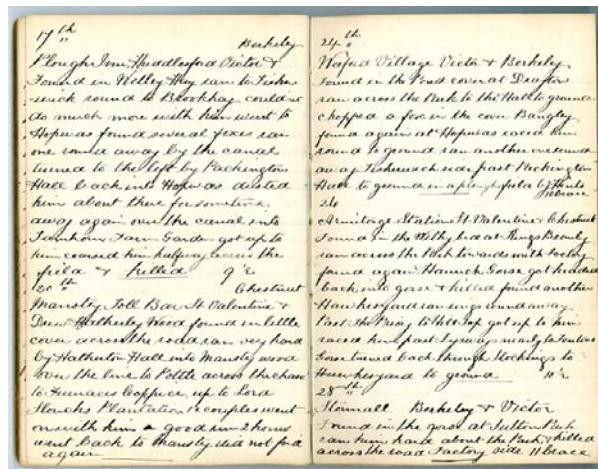 17th
Berkeley
Plough Inn Huddlesford Victor &
Found in Willey Hay ran to Fisher
wick round to Brookhay couldn't
do much more with him went to
Hopwas found several foxes ran
one round away by the canal
turned to the left by Packington
Hall back into Hopwas dusted
him about there for sometime
away again over the canal into
Tamhorn Farm Garden got up to
him coursed him halfway across the
field & killed 9½
20th Chestnut
Mansty Toll Bar St Valentine &
Drew Hatherley Wood found in little
cover across the road ran very hard
by Hatherton Hall into Mansty wood
over the line to Pottle across the chase
to Furnaces Coppice, up to Lord
Plantation couples went
on with him a good run 2 hours
went back to Mansty did not find
again
24th
Village Victor & Berkeley
Found in the Pond cover at Drayton
ran across the Park to the Hall to ground
chopped a fox in the cover Bangley
found again at Hopwas raced him
round to ground ran another one round
away Fisherwick side past Packington
Hall to ground in a ploughed field
26
Armitage Station St Valentine & Chestnut
Found in the Withy bed at Kings Bromley
ran across the Park towards with
found again Gorse got headed
back into gorse & killed found another
Hawkesyard ran rings round away
Past the Priory to Hill Top got up to him
raced him past nearly to
Gorse turned back through Stockings to
Hawkesyard to ground 10½
28th
Stonnall Berkeley & Victor
Found in the gorse at Sutton Park
ran him hard about the Park & killed
across the road Factory side 11 brace